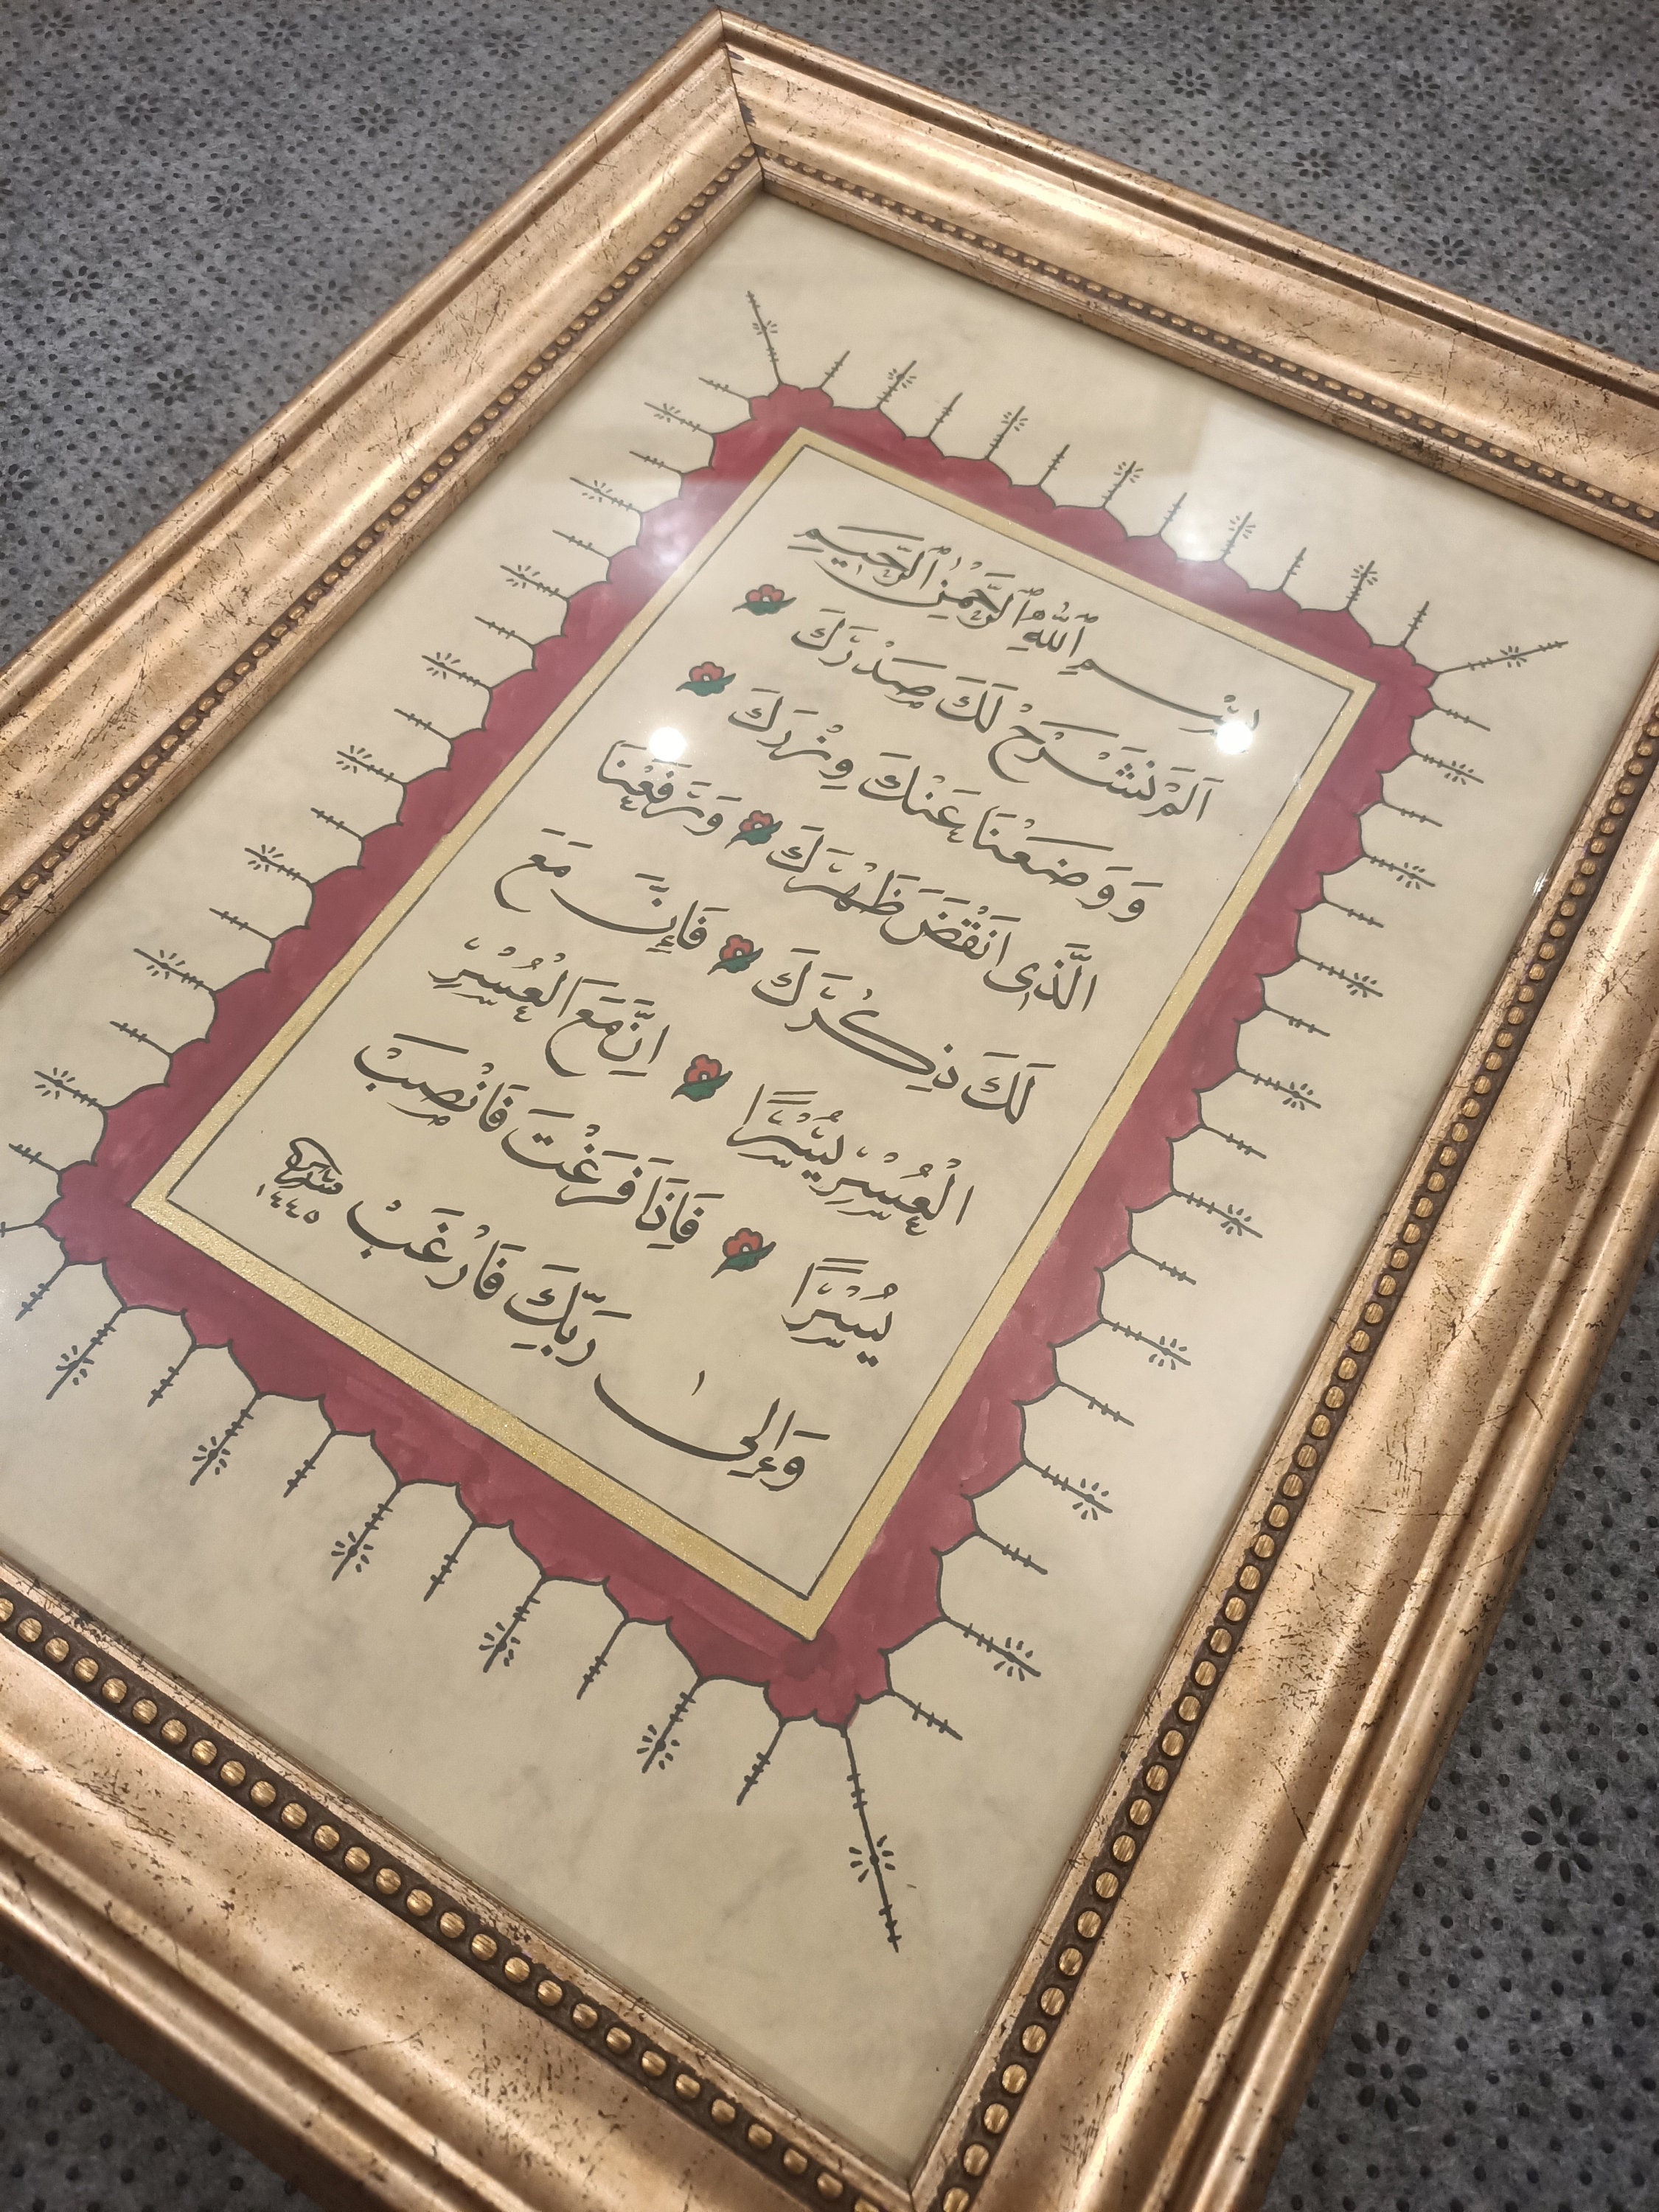 بِسْمِ ٱللّٰهِ ٱلرَّحْمٰنِ ٱلرَّحِيمِ
اَلَمْ نَشْرَحْ لَكَ صَدْرَكَ
وَوَضَعْنَا عَنْكَ وِزْرَكَ
الَّذِى اَنْقَضَ ظَهْرَكَ وَرَفَعْنَا
لَكَ ذِكْرَكَ فَاِنَّ مَعَ
الْعُسْرِ يُسْرًا اِنَّ مَعَ الْعُسْرِ
يُسْرًا فَاِذَا فَرَغْتَ فَانْصَبْ
وَاِلٰى رَبِّكَ فَارْغَبْ
١٤٤٥